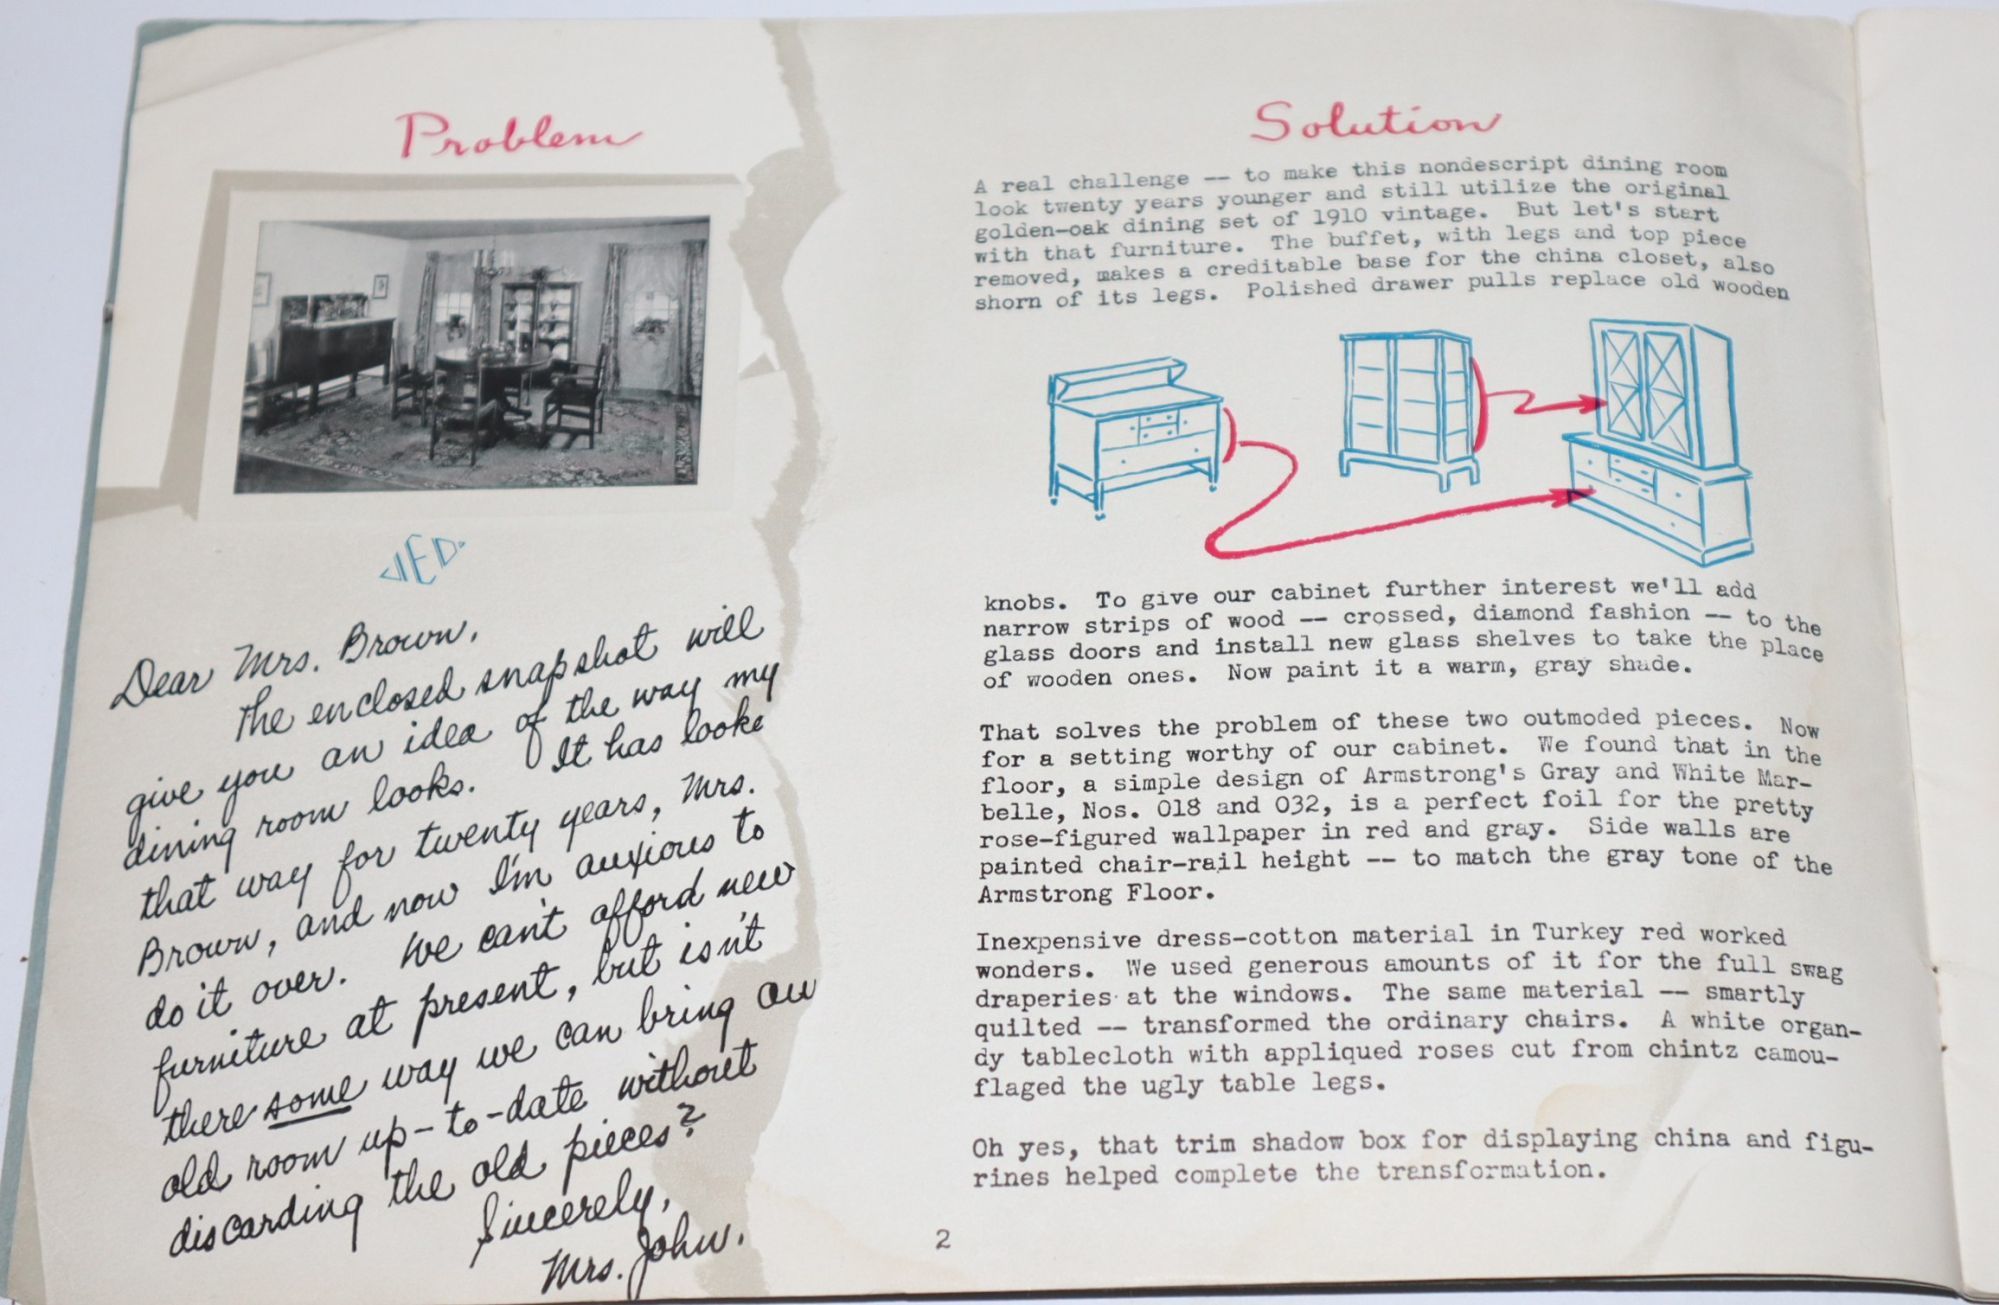 Problem
JED.
Dear Mrs. Brown,
The enclosed snapshot will
give you an idea of the way my
dining room looks. It has looke
that way for twenty years, Mrs.
Brown, and now I'm anxious to
do it over. We can't afford new
furniture at present, but isn't
there some way we can bring our
old room up-to-date without
discarding the old pieces?
Sincerely,
Mrs. John.
Solution
A real challenge -- to make this nondescript dining room
look twenty years younger and still utilize the original
golden-oak dining set of 1910 vintage. But let's start
with that furniture. The buffet, with legs and top piece
removed, makes a creditable base for the china closet, also
shorn of its legs. Polished drawer pulls replace old wooden
knobs. To give our cabinet further interest we'll add
narrow strips of wood -- crossed, diamond fashion -- to the
glass doors and install new glass shelves to take the place
of wooden ones. Now paint it a warm, gray shade.
That solves the problem of these two outmoded pieces. Now
for a setting worthy of our cabinet. We found that in the
floor, a simple design of Armstrong's Gray and White Mar-
belle, Nos. 018 and 032, is a perfect foil for the pretty
rose-figured wallpaper in red and gray. Side walls are
painted chair-rail height -- to match the gray tone of the
Armstrong Floor.
Inexpensive dress-cotton material in Turkey red worked
wonders. We used generous amounts of it for the full swag
draperies at the windows. The same material -- smartly
quilted -- transformed the ordinary chairs. A white organ-
dy tablecloth with appliqued roses cut from chintz camou-
flaged the ugly table legs.
Oh yes, that trim shadow box for displaying china and figu-
rines helped complete the transformation.
2